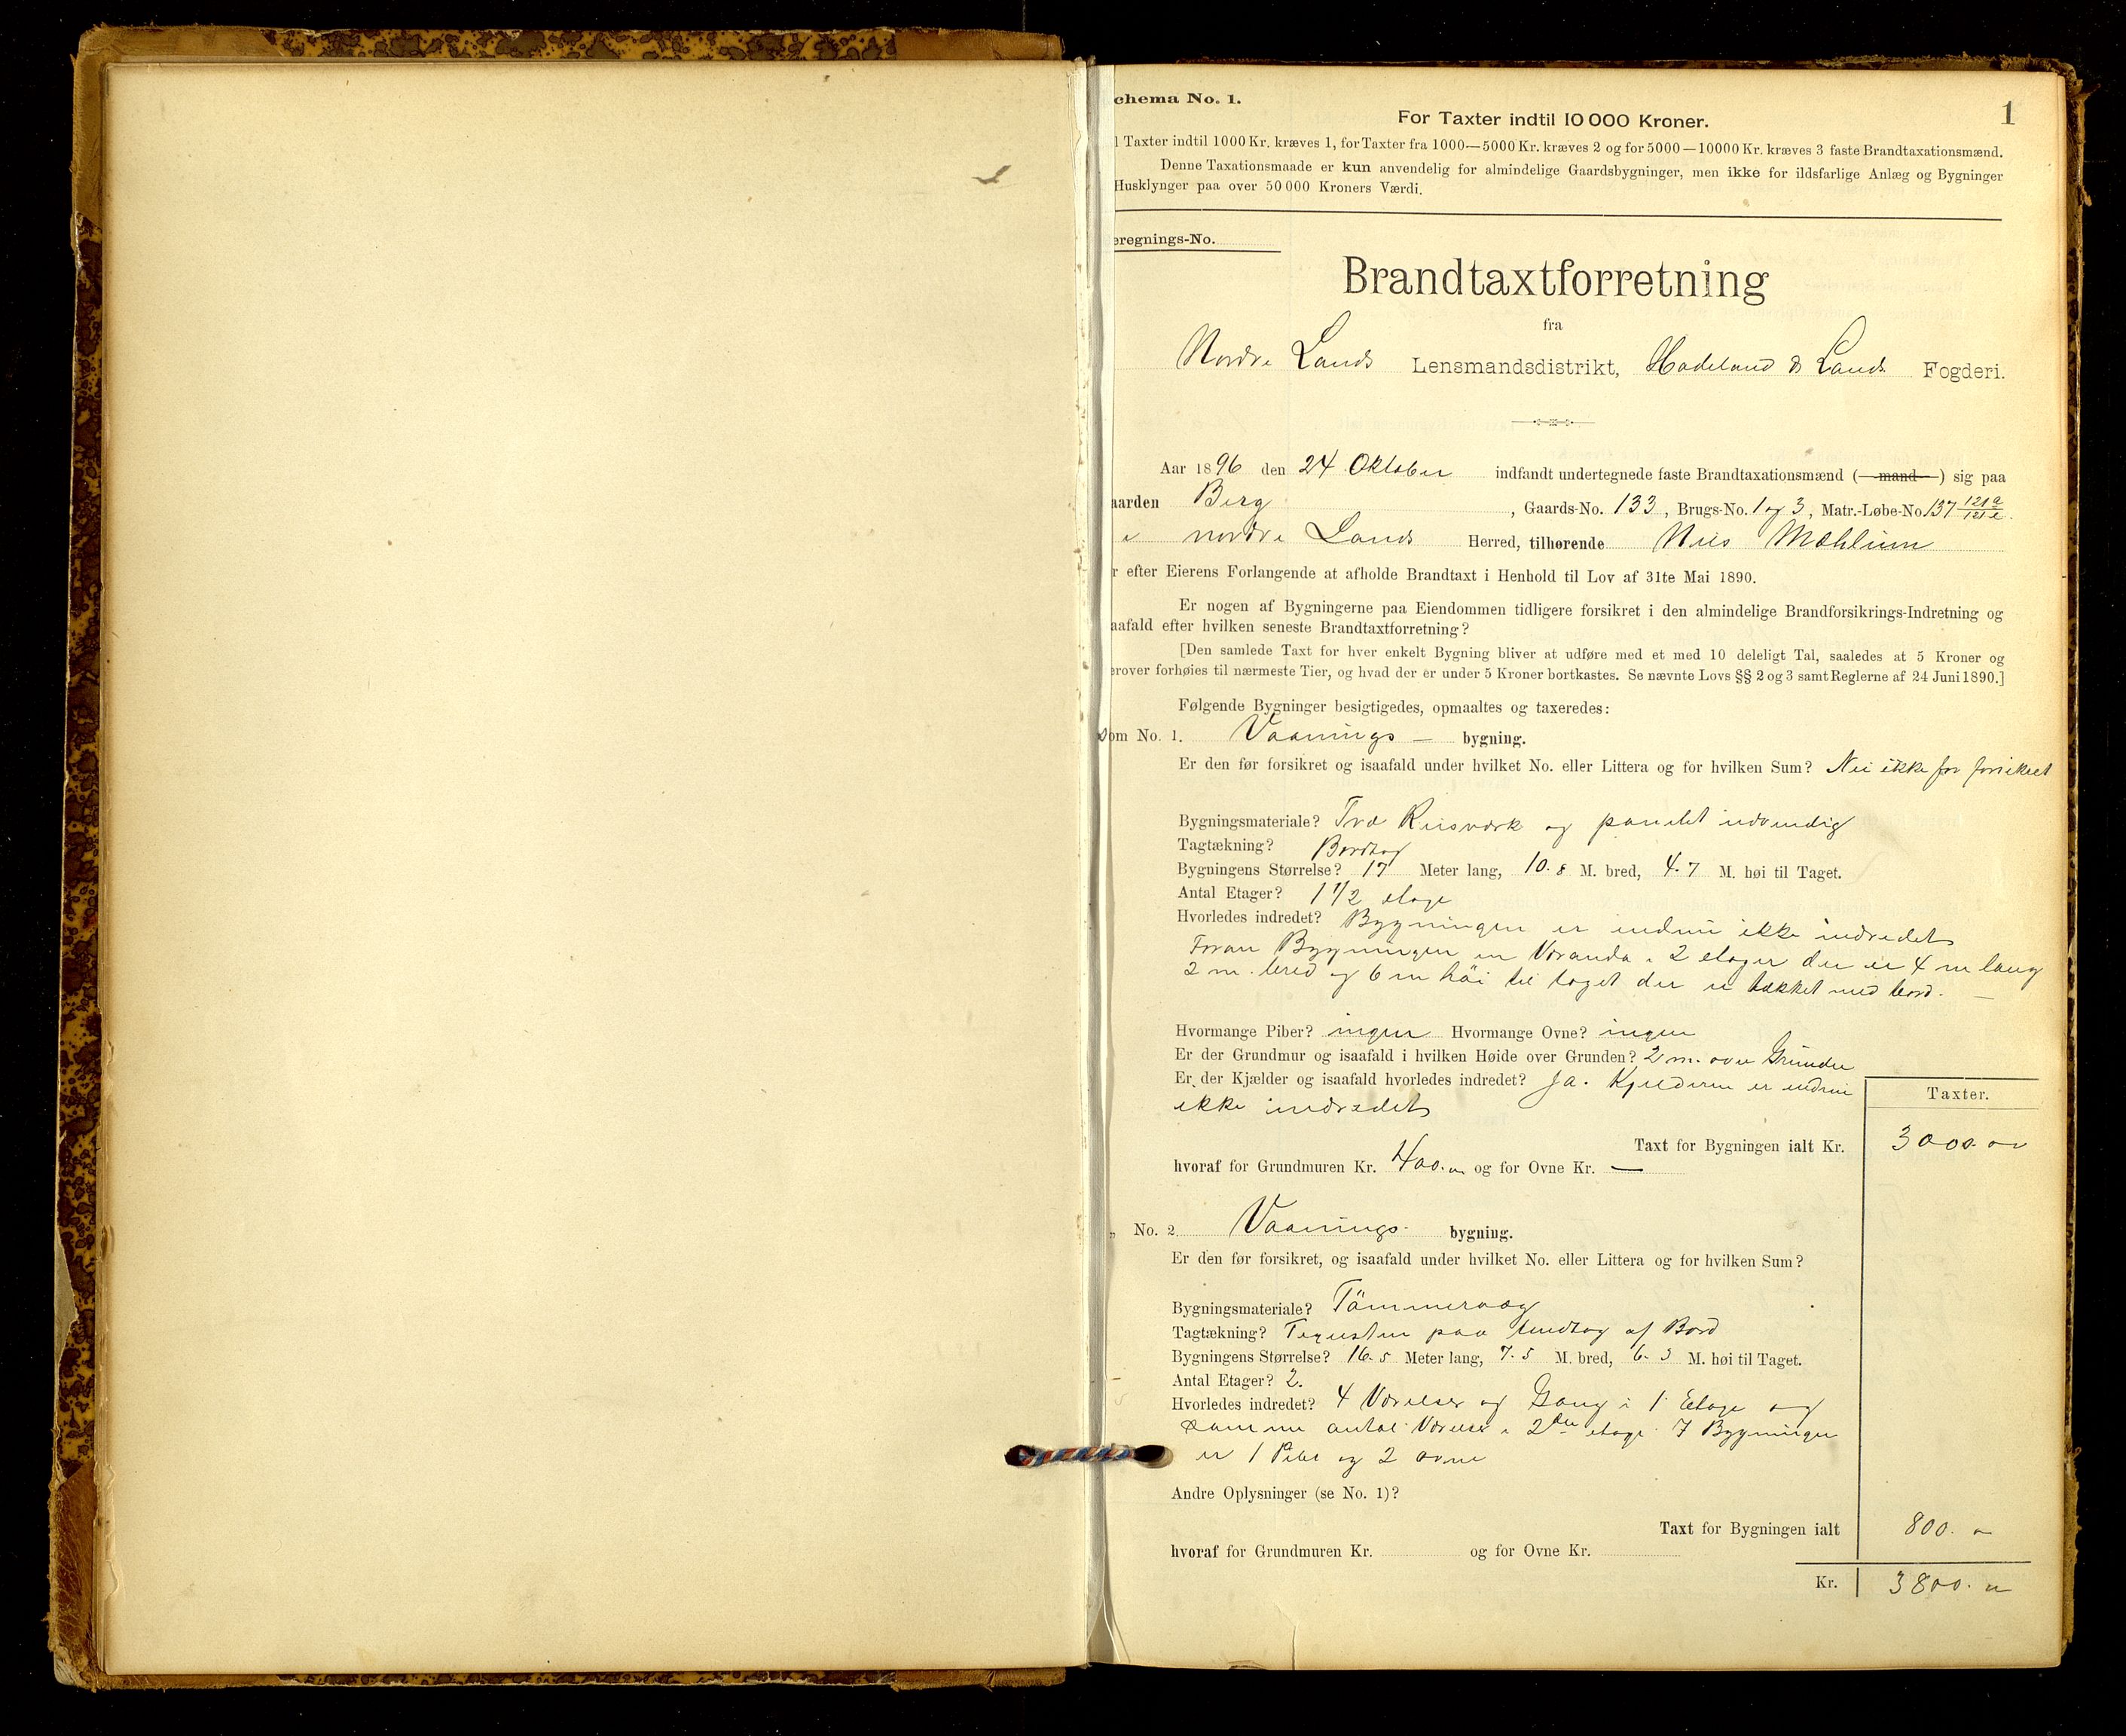 chema No. 1.
1
For Taxter indtil 10 000 Kroner.
l Taxter indtil 1000 Kr. kræves 1, for Taxter fra 1000—5000 Kr. kræves 2 og for 5000—10000 Kr. kræves 3 faste Brandtaxationsmænd.
Denne Taxationsmaade er kun anvendelig for almindelige Gaardsbygninger, men ikke for ildsfarlige Anlæg og Bygninger
Husklynger paa over 50 000 Kroners Værdi.
eregnings-No.
Brandtaxtforretning
fra
Nordre Lands Lensmandsdistrikt, Hadeland & Lands Fogderi.
Aar 1896 den 24 Oktober indfandt undertegnede faste Brandtaxationsmænd (mand) sig paa
aarden Berg, Gaards-No. 133, Brugs-No. 1 og 3, Matr.-Løbe-No 137
i nordre Lands Herred, tilhørende Nils Mæhlum
r efter Eierens Forlangende at afholde Brandtaxt i Henhold til Lov af 31te Mai 1890.
Er nogen af Bygningerne paa Eiendommen tidligere forsikret i den almindelige Brandforsikrings-Indretning og
aafald efter hvilken seneste Brandtaxtforretning?
[Den samlede Taxt for hver enkelt Bygning bliver at udføre med et med 10 deleligt Tal, saaledes at 5 Kroner og
erover forhøies til nærmeste Tier, og hvad der er under 5 Kroner bortkastes. Se nævnte Lovs §§ 2 og 3 samt Reglerne af 24 Juni 1890.]
Følgende Bygninger besigtigedes, opmaaltes og taxeredes:
om No. 1. Vaanings — bygning.
Er den før forsikret og isaafald under hvilket No. eller Littera og for hvilken Sum? Nei ikke før forsikret
Bygningsmateriale? Træ Reisværk og panelet udvendig
Tagtækning? Bordtag
Bygningens Størrelse? 17 Meter lang, 10.8 M. bred, 4.7 M. høi til Taget.
Antal Etager? 1 1/2 etage
Hvorledes indredet? Bygningen er endnu ikke indredet
Foran Bygningen en Veranda i 2 etager der er 4 m lang
2 m. bred og 6 m høi til taget der er tækket med bord. —
Hvormange Piber? ingen Hvormange Ovne? ingen
Er der Grundmur og isaafald i hvilken Høide over Grunden? 2 m. over Grunden
Er der Kjælder og isaafald hvorledes indredet? Ja. Kjelderen er endnu
ikke indredet
Taxter.
Taxt for Bygningen ialt Kr. 3000.00
hvoraf for Grundmuren Kr. 400.00 og for Ovne Kr. —
„ No. 2. Vaanings bygning.
Er den før forsikret, og isaafald under hvilket No. eller Littera og for hvilken Sum?
Bygningsmateriale? Tömmer
Tagtækning? Tegelsten paa undtag af Bord
Bygningens Størrelse? 16.5 Meter lang, 7.5 M. bred, 6.3 M. høi til Taget.
Antal Etager? 2.
Hvorledes indredet? 4 Værelser og Gang i 1 Etage og
samme antal Værelser i 2den etage. I Bygningen
er 1 Pibe og 2 ovne
Andre Oplysninger (se No. 1)?
Taxt for Bygningen ialt 800.
hvoraf for Grundmuren Kr. og for Ovne Kr.
Kr. 3800.